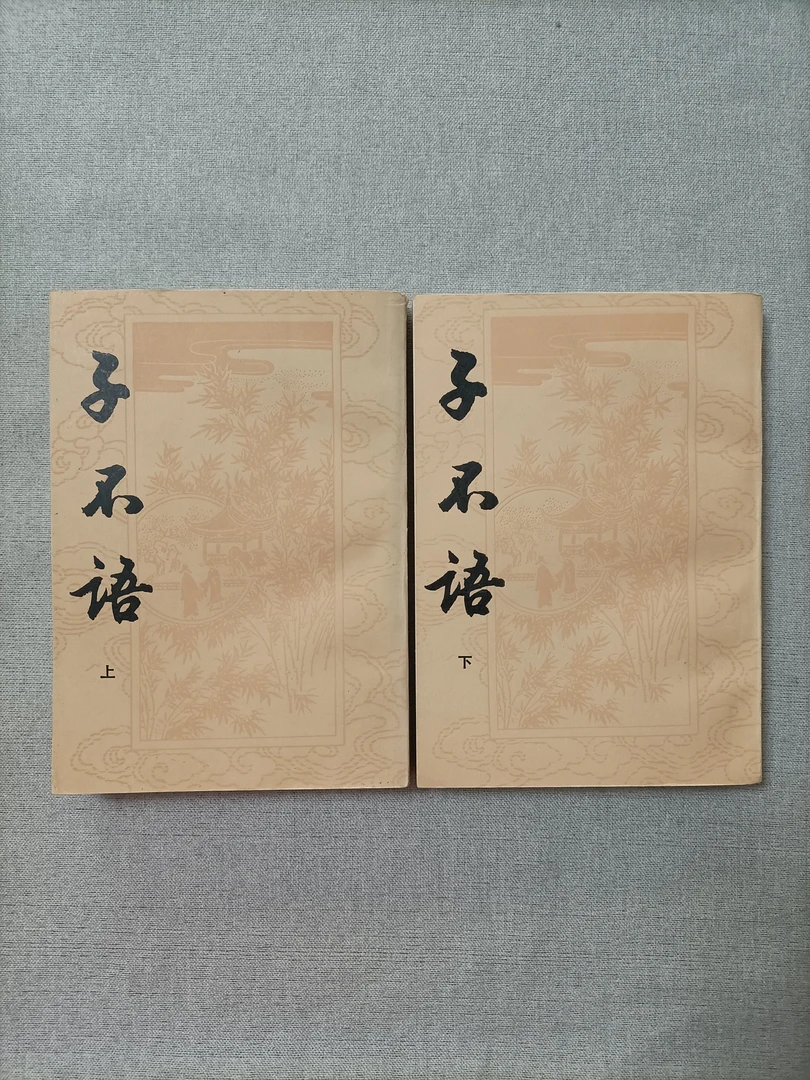 子不语
上
子不语
下